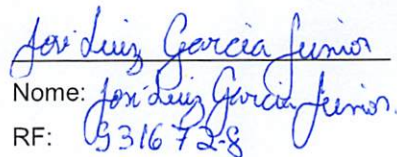 José Luiz Garcia Junior
Nome: José Luiz Garcia Junior.
RF: 931672-8